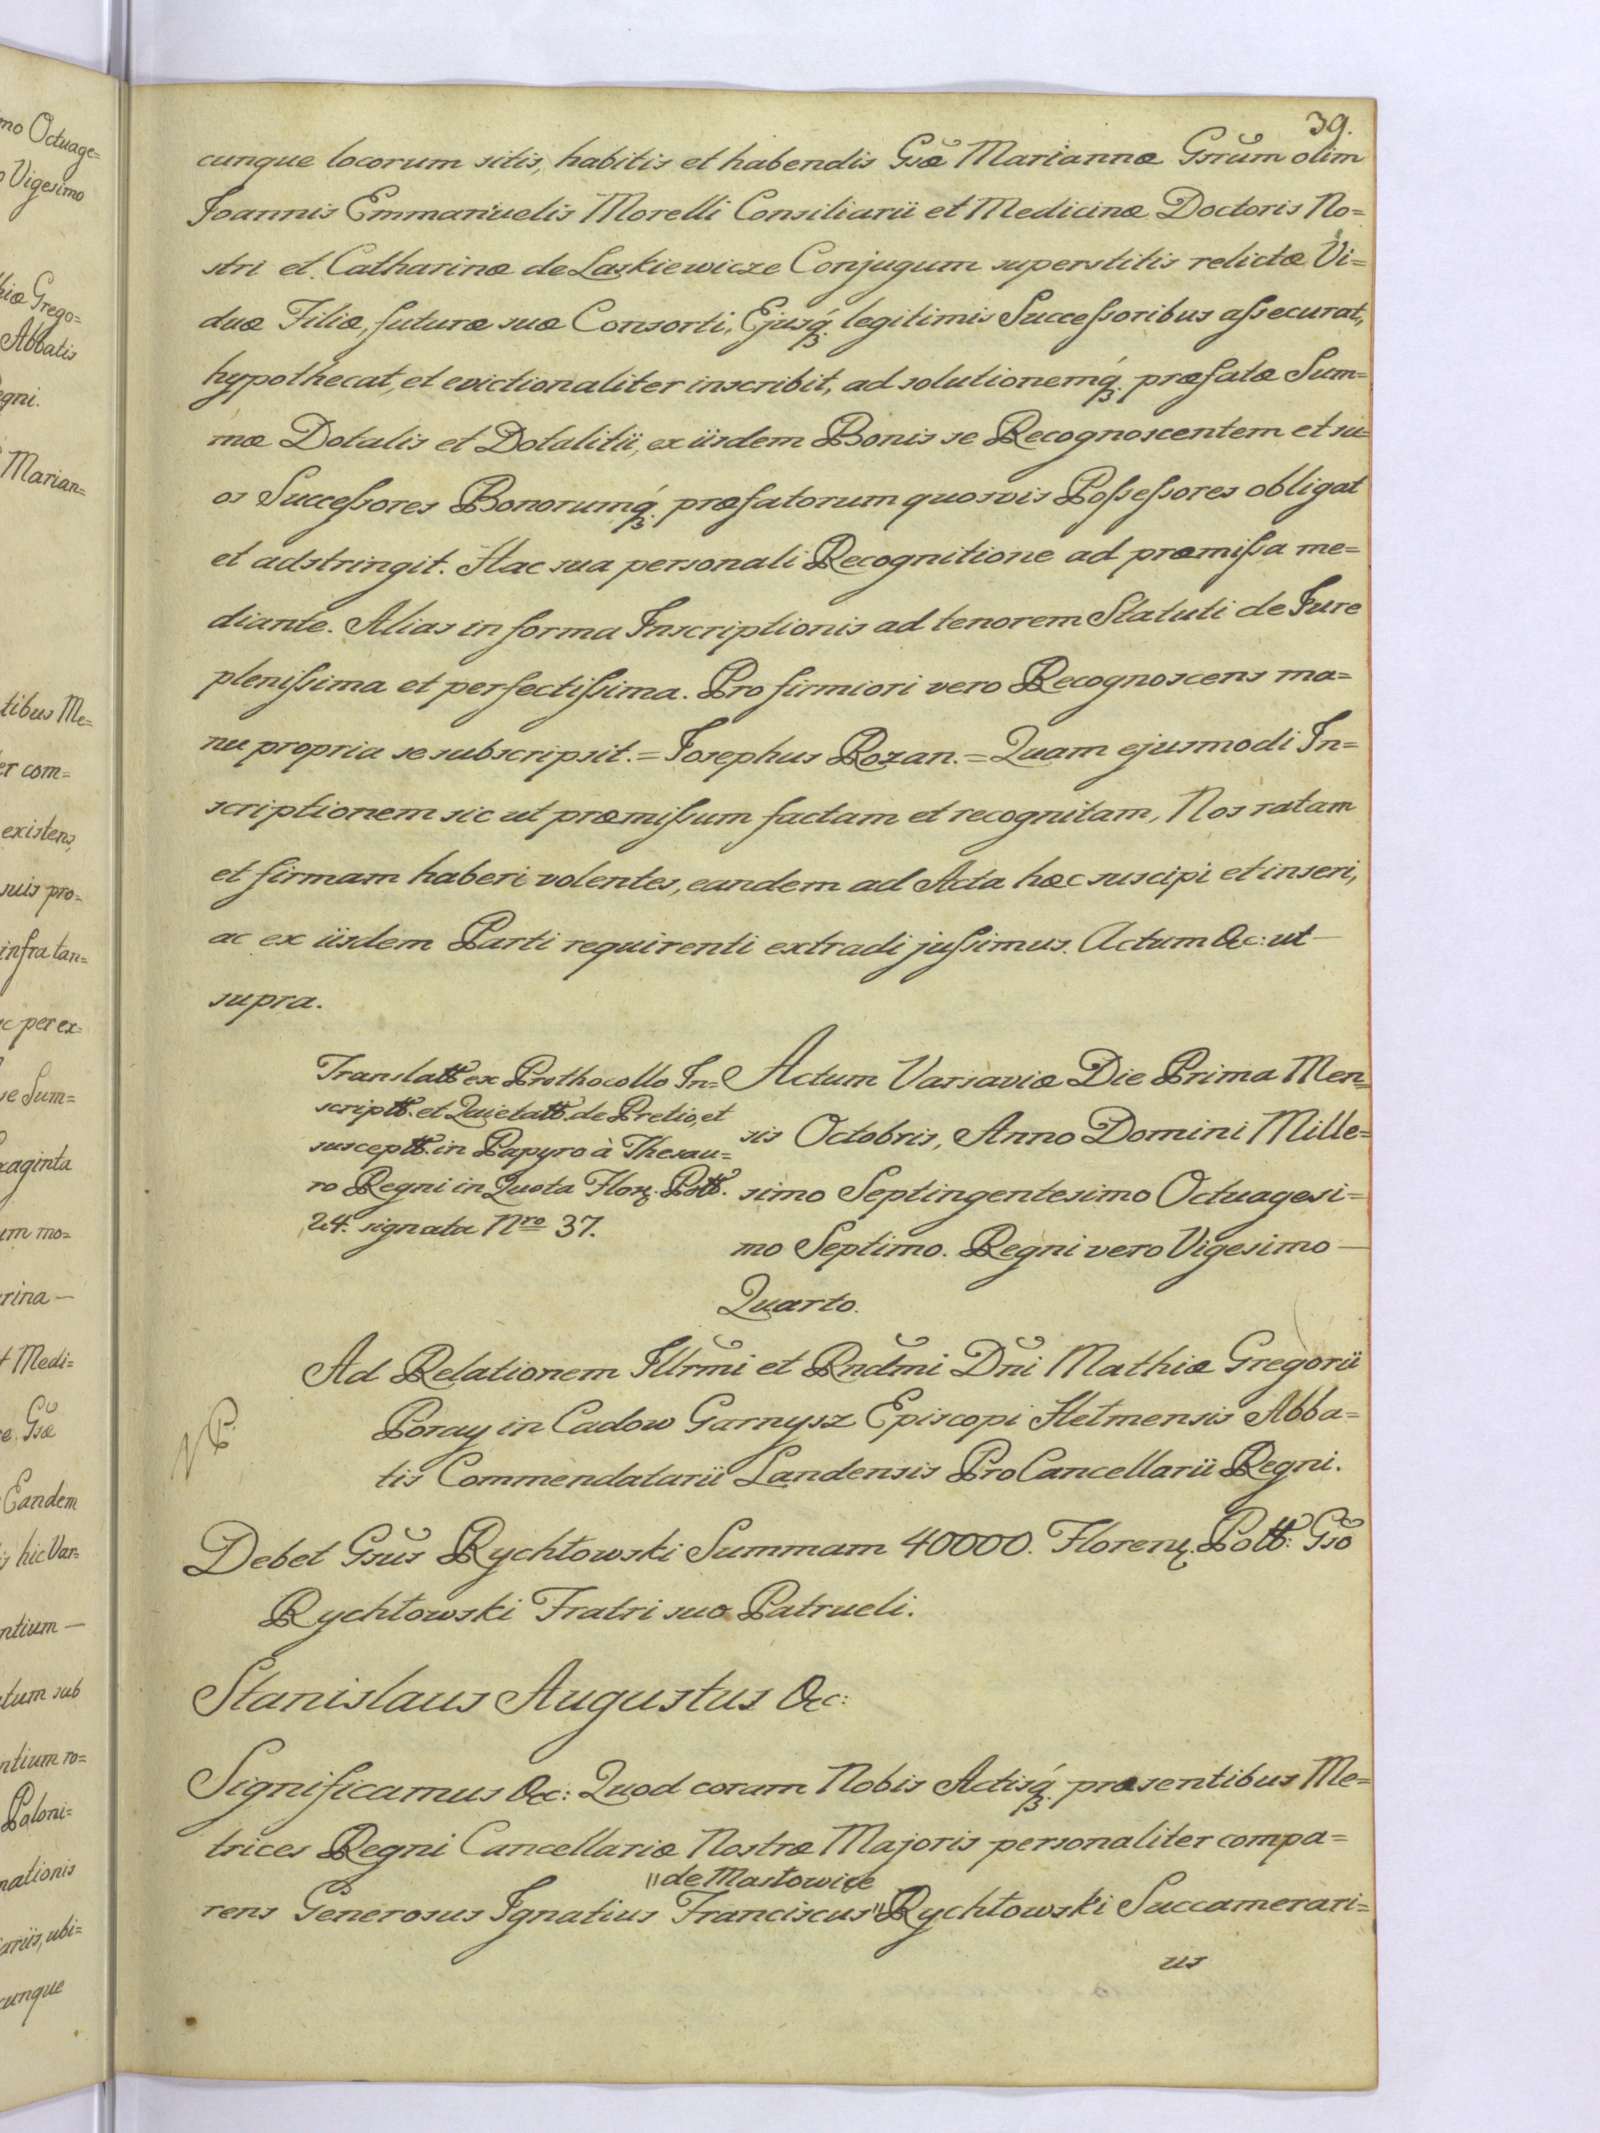 39.
cunque locorum sitis, habitis et habendis Gsæ Mariannæ Gsrum olim
Joannis Emmanuelis Morelli Consiliarii et Medicinæ Doctoris No=
stri et Catharinæ de Laskiewicze Conjugum superstitis relictæ Vi=
duæ Filiæ, futuræ suæ Consorti, Ejusq́ʒ legitimis Succeſsoribus aſsecurat,
hypothecat, et evictionaliter inscribit, ad solutionemq́ʒ præfatæ Sum=
mæ Dotalis et Dotalitii, ex iisdem Bonis se Recognoscentem et su=
os Succeſsores Bonorumq́ʒ præfatorum quosvis Poſseſsores obligat
et adstringit. Hac sua personali Recognitione ad præmiſsa me=
diante. Alias in forma Inscriptionis ad tenorem Statuti de Jure
pleniſsima et perfectiſsima. Pro firmiori vero Recognoscens ma=
nu propria se subscripsit. = Josephus Rozan. = Quam ejusmodi In=
scriptionem sic ut præmiſsum factam et recognitam, Nos ratam
et firmam haberi volentes, eandem ad Acta hæc suscipi et inseri,
ac ex iisdem Parti requirenti extradi juſsimus. Actum &c: ut —
supra.
Translatt. ex Prothocollo In=
scriptt. et Quietatt. de Pretio, et
susceptt. in Papyro à Thesau=
ro Regni in Quota Flor. Poll.
24. signata Nro 37.
Actum Varsaviæ Die Prima Men=
sis Octobris, Anno Domini Mille=
simo Septingentesimo Octuagesi=
mo Septimo. Regni vero Vigesimo —
Quarto.
Ad Relationem Illrmi et Rndmi Dni Mathiæ Gregorii
Poray in Cadow Garnysz Episcopi Helmensis Abba=
tis Commendatarii Landensis ProCancellarii Regni.
Debet Gsus Rychłowski Summam 40000. Floren. Poll: Gso
Rychłowski Fratri suo Patrueli.
Stanislaus Augustus &c:
Significamus &c: Quod coram Nobis Actisq́ʒ præsentibus Me=
trices Regni Cancellariæ Nostræ Majoris personaliter compa=
"de Masłowice
rens Generosus Ignatius Franciscus" Rychłowski Succamerari=
us
mo Octuage=
o Vigesimo
hiæ Grego=
Abbatis
egni.
Marian=
tibus Me=
er com=
existens,
suis pro=
infra tan=
c per ex=
se Sum=
xaginta
um mo=
rina —
t Medi=
e. Gsæ
Eandem
is hic Var=
ntium —
tum sub
ntium ro=
Poloni=
nationis
ariis, ubi=
cunque